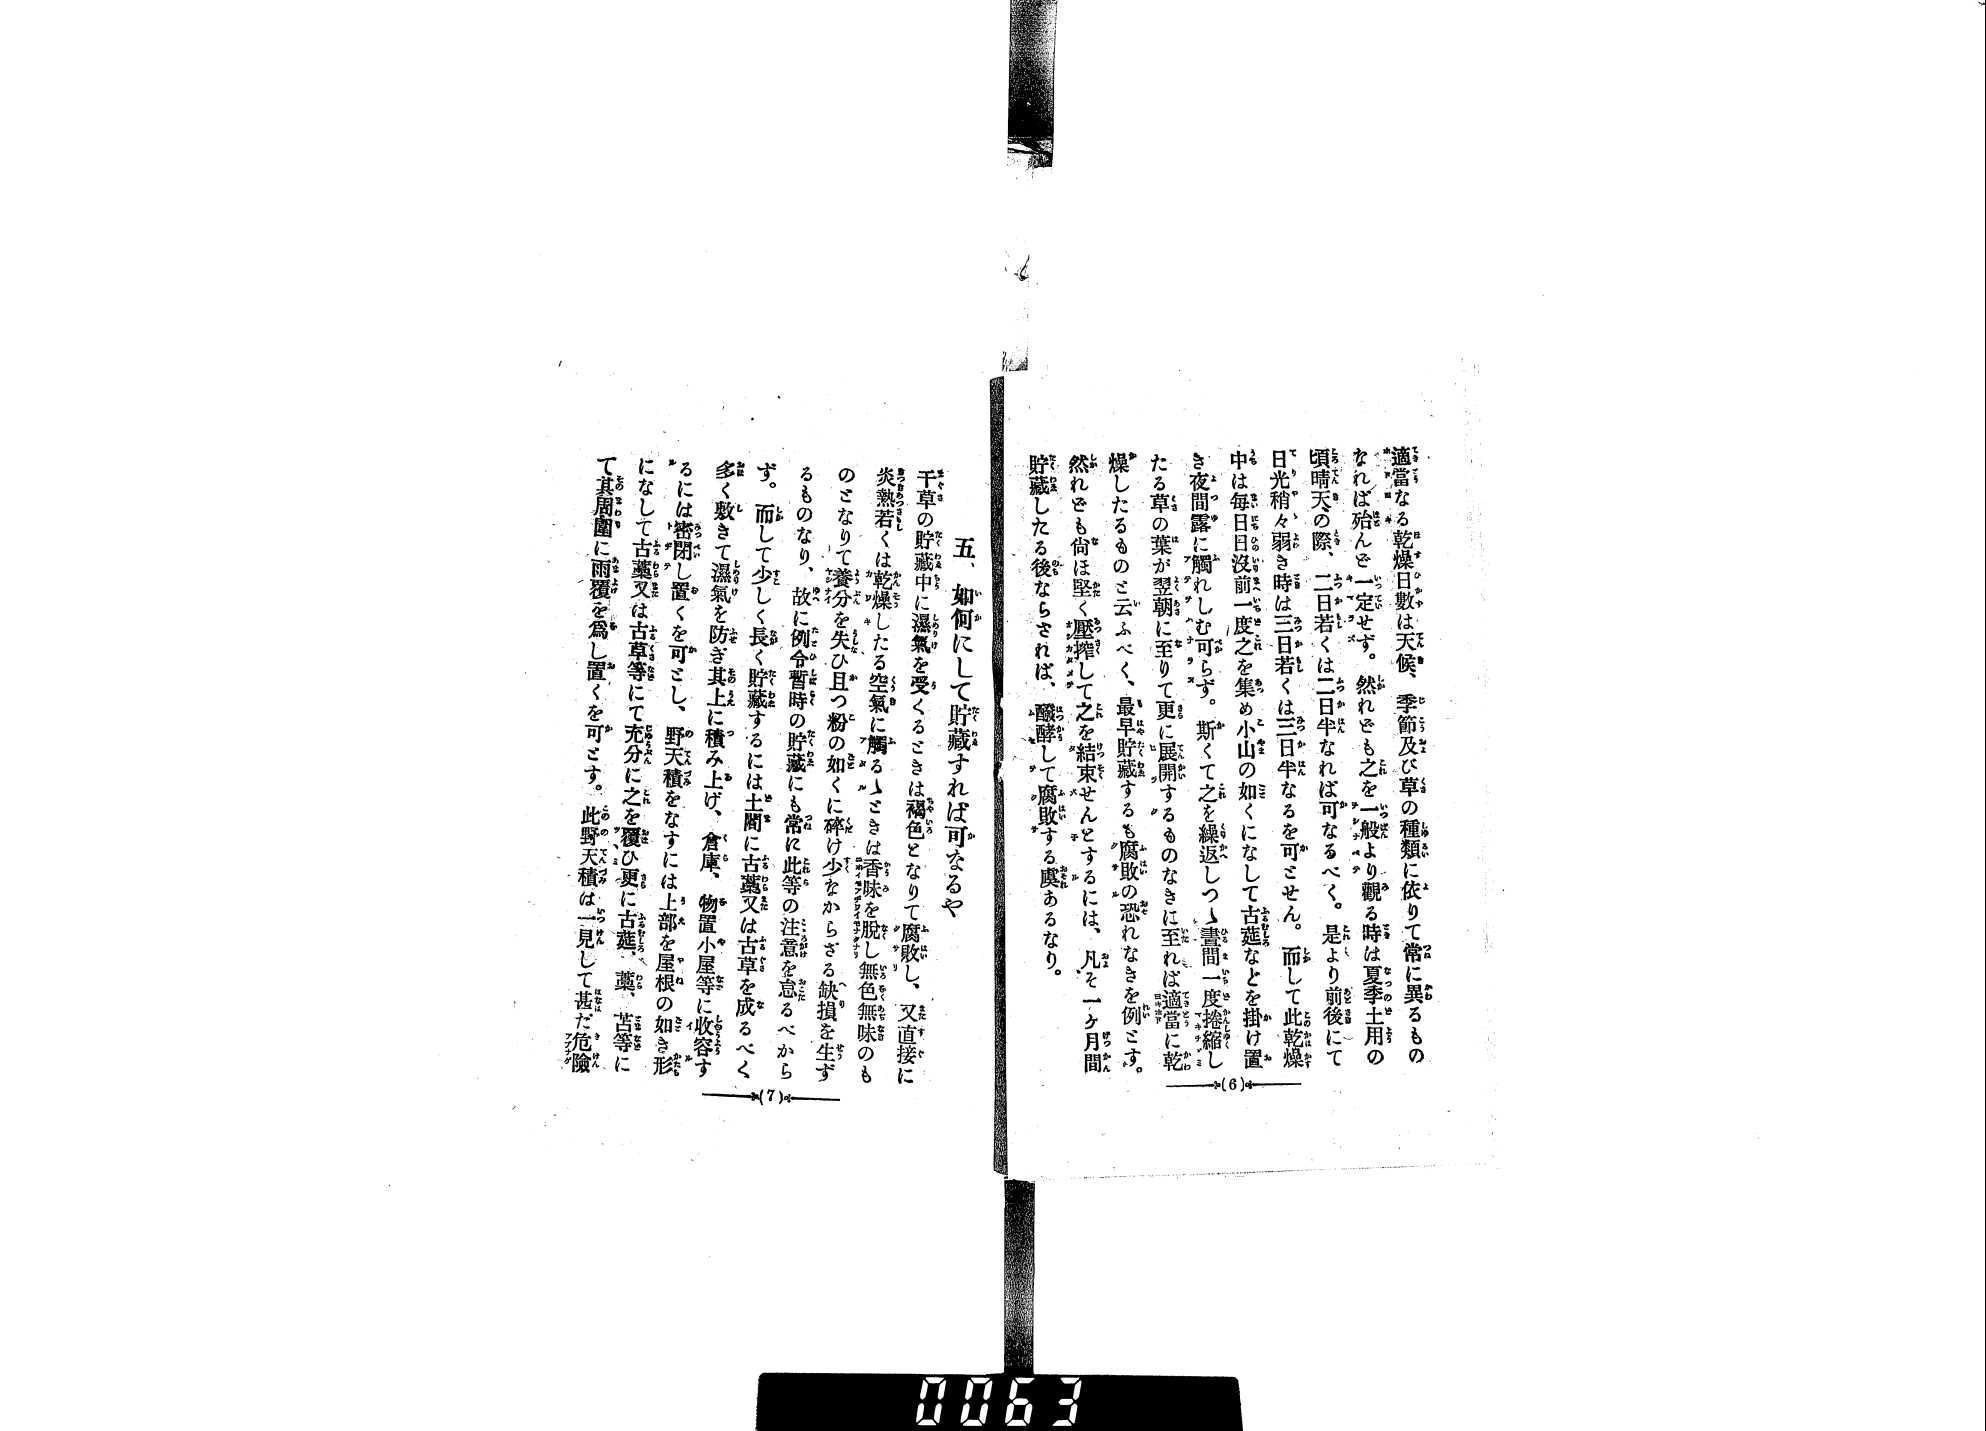 適當なる乾燥日數は天候、季節及び草の種類に依りて常に異るもの
なれば殆んど一定せず。然れども之を一般より觀る時は夏季土用の
頃晴天の際、二日若くは二日半なれば可なるべく。是より前後にて
日光稍々弱き時は三日若くは三日半なるを可とせん。而して此乾燥
中は毎日日沒前一度之を集め小山の如くになして古莚などを掛け置
き夜間露に觸れしむ可らず。斯くて之を繰返しつゝ晝間一度捲縮し
たる草の葉が翌朝に至りて更に展開するものなきに至れば適當に乾
燥したるものと云ふべく、最早貯藏するも腐敗の恐れなきを例とす。
然れども尙ほ堅く壓搾して之を結束せんとするには、凡そ一ヶ月間
貯藏したる後ならざれば、醱酵して腐敗する虞あるなり。
(6)
五、如何にして貯藏すれば可なるや
干草の貯藏中に濕氣を受くるときは褐色となりて腐敗し、又直接に
炎熱若くは乾燥したる空氣に觸るゝときは香味を脫し無色無味のも
のとなりて養分を失ひ且つ粉の如くに碎け少なからざる缺損を生ず
るものなり、故に例令暫時の貯藏にも常に此等の注意を怠るべから
ず。而して少しく長く貯藏するには土間に古藁又は古草を成るべく
多く敷きて濕氣を防ぎ其上に積み上げ、倉庫、物置小屋等に收容す
るには密閉し置くを可とし、野天積をなすには上部を屋根の如き形
になして古藁又は古草等にて充分に之を覆ひ更に古莚、藁、苫等に
て其周圍に雨覆を爲し置くを可とす。此野天積は一見して甚だ危險
(7)
0063